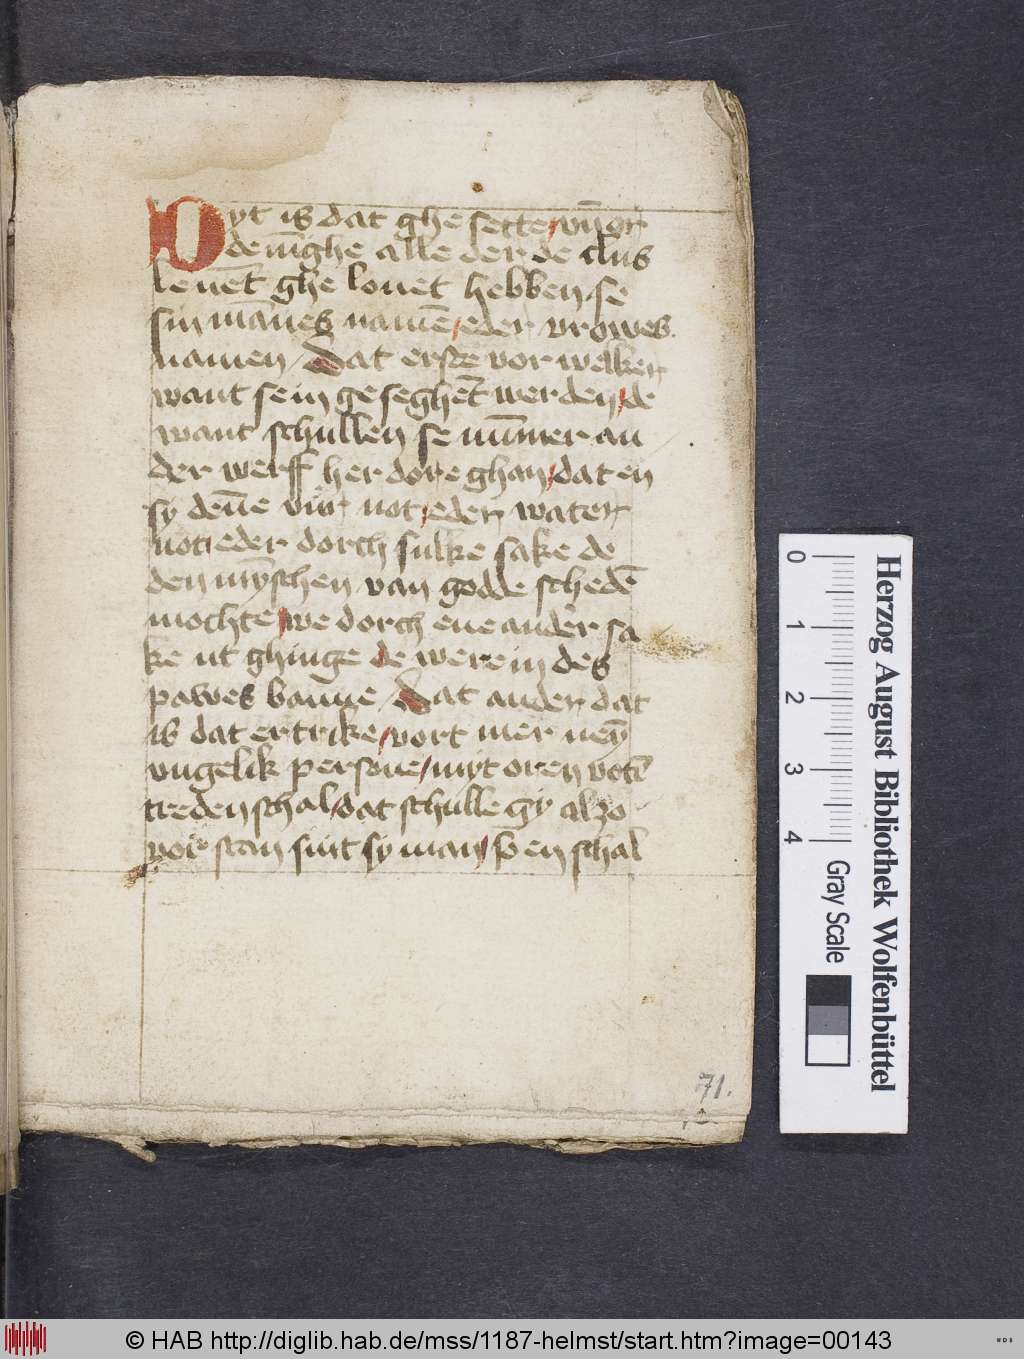 Dyt is dat ghe sette / vn̄ or
denīghe alle der de clus
leuēt ghe louet hebben / se
sin mānes namē / eder vrowes
namen / Dat erste vor welker
want sein geseghēt werden / de
want schullen se nūmer an
der werff her dore ghan / dat en
sy dēne vur not / eder water
not / eder dorch sulke sake de
den mȳschen van godde schedē
mochte / we dorch ene ander sa
ke ut ghinge de were in des
pawes banne / Dat ander dat
is dat ertrike / vort mer neȳ
vngelik persone / myt oren votē
treden schal / dat schulle gy alzo
vor stan sint sy man / so en schal
71.
0 1 2 3 4
Gray Scale
Herzog August Bibliothek Wolfenbüttel
© HAB http://diglib.hab.de/mss/1187-helmst/start.htm?image=00143